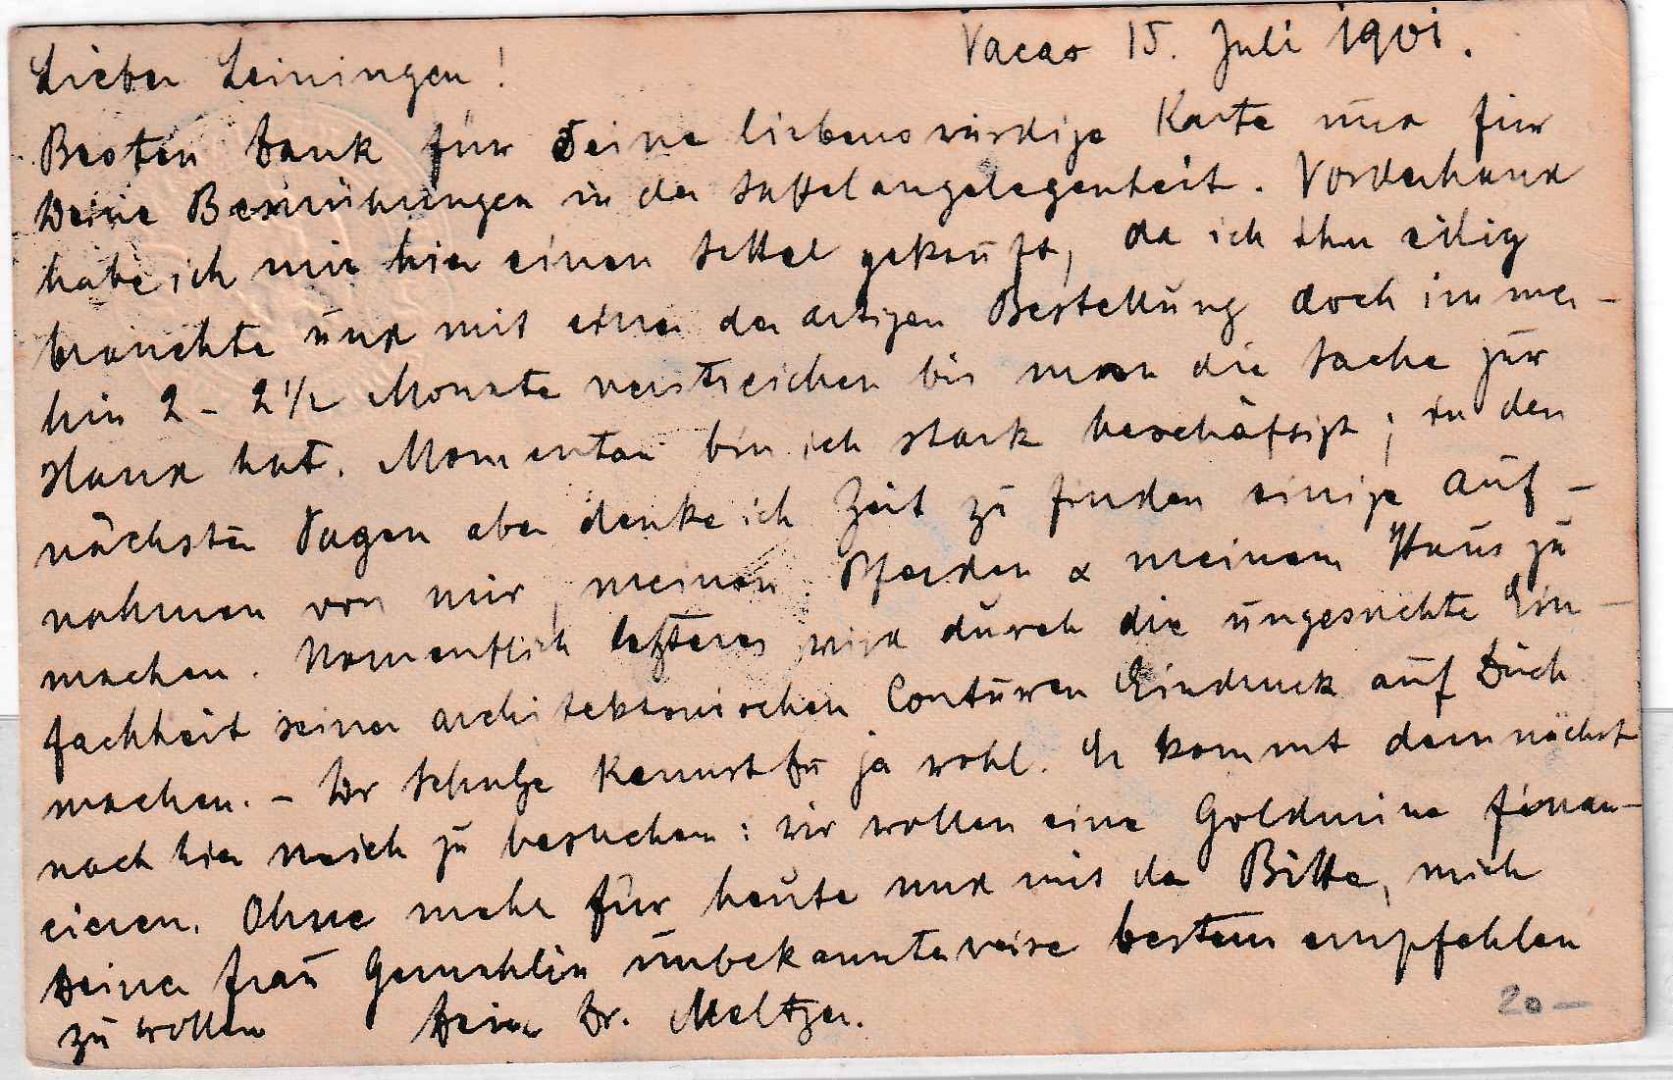 Vacas 15. Juli 1901.
Lieber Leiningen!
Besten Dank für Deine liebenswürdige Karte und für
Deine Bemühungen in der Sattelangelegenheit. Vorderhand
habe ich mir hier einen Sattel gekauft, da ich ihn eilig
brauchte und mit einer derartigen Bestellung doch immer-
hin 2 - 2½ Monate verstreichen bis man die Sache zur
Hand hat. Momentan bin ich stark beschäftigt; in den
nächsten Tagen aber denke ich Zeit zu finden einige Auf-
nahmen von mir, meinen Pferden & meinem Haus zu
machen. Namentlich letzteres wird durch die ungesuchte Ein-
fachheit seiner architektonischen Conturen Eindruck auf Dich
machen. - Dr Schulze kennst Du ja wohl. Er kommt demnächst
nach hier mich zu besuchen: wir wollen eine Goldmine finan-
cieren. Ohne mehr für heute und mit der Bitte, mich
Deiner Frau Gemahlin unbekannterweise bestens empfehlen
zu wollen Dein Dr. Meltzer.
20 —